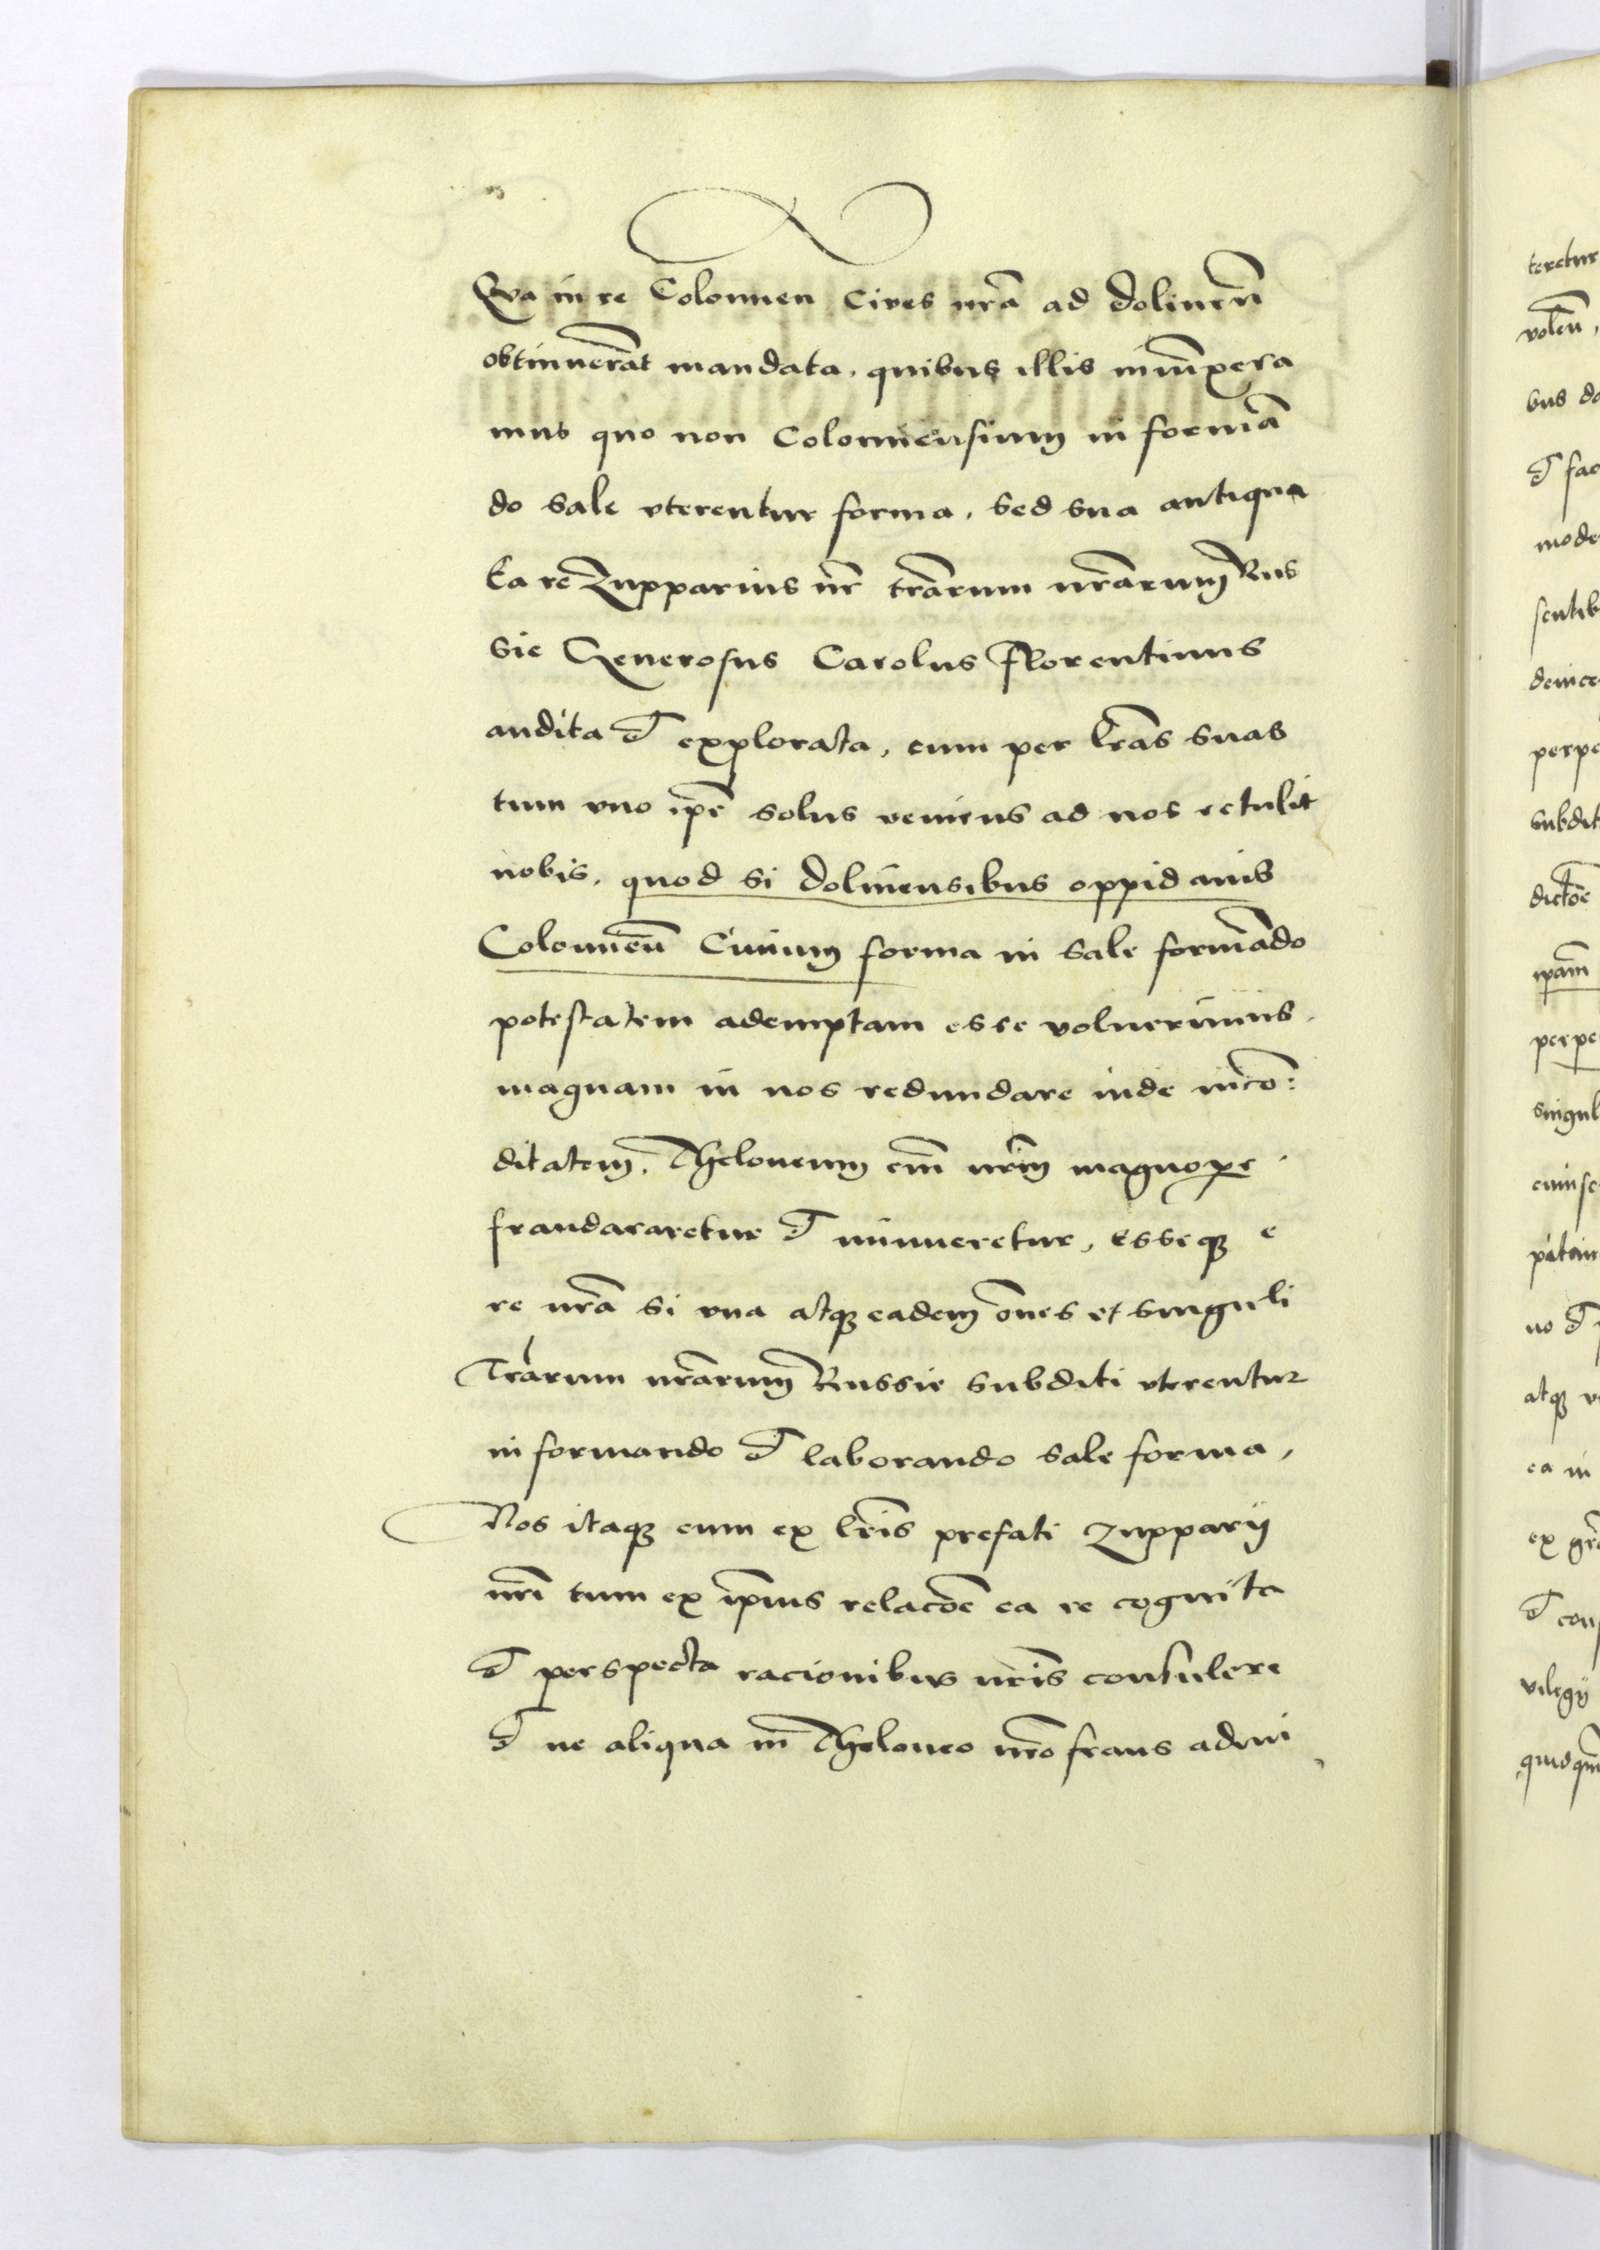 Qva in re Colomien Cives nrã ad dolineñ
obtinuerãt mandata, quibus illis inm̃pera
mus quo non Colomiensium in formã
do sale vterentur forma, sed sua antiqua
Ea re Zupparius nr̃ trãrum nrãrum Rus
sie Generosus Carolus Florentinus
audita et explorata, cum per lrãs suas
tum vno ip̃e solus veniens ad nos retulit
nobis, quod si doliniensibus oppidanis
Colomieñ Civium forma in sale formãdo
potestatem ademptam esse voluerimus,
magnam in nos redundare inde inco͂:
ditatem, Theloneum em̃ nrm̃ magnope
fraudararetur et minueretur, Esseq e
re nrã si vna atq eadem õnes et singuli
Trãrum nrãrum Russie subditi vterentur
in formando et laborando sale forma,
Nos itaq cum ex lrĩs prefati Zupparij
nrĩ tum ex ip̃ius relacõe ea re cognita
et perspecta racionibus nrĩs consulere
et ne aliqua in Theloneo nrõ fraus admi
teretur
voleñ,
bus
et fac
mode
sentib
deince
perpe
subdit
dictõe
ipam̃
perpe
singul
cuiusc
no et
atq
ea in
ex grã
et cons
vilegij